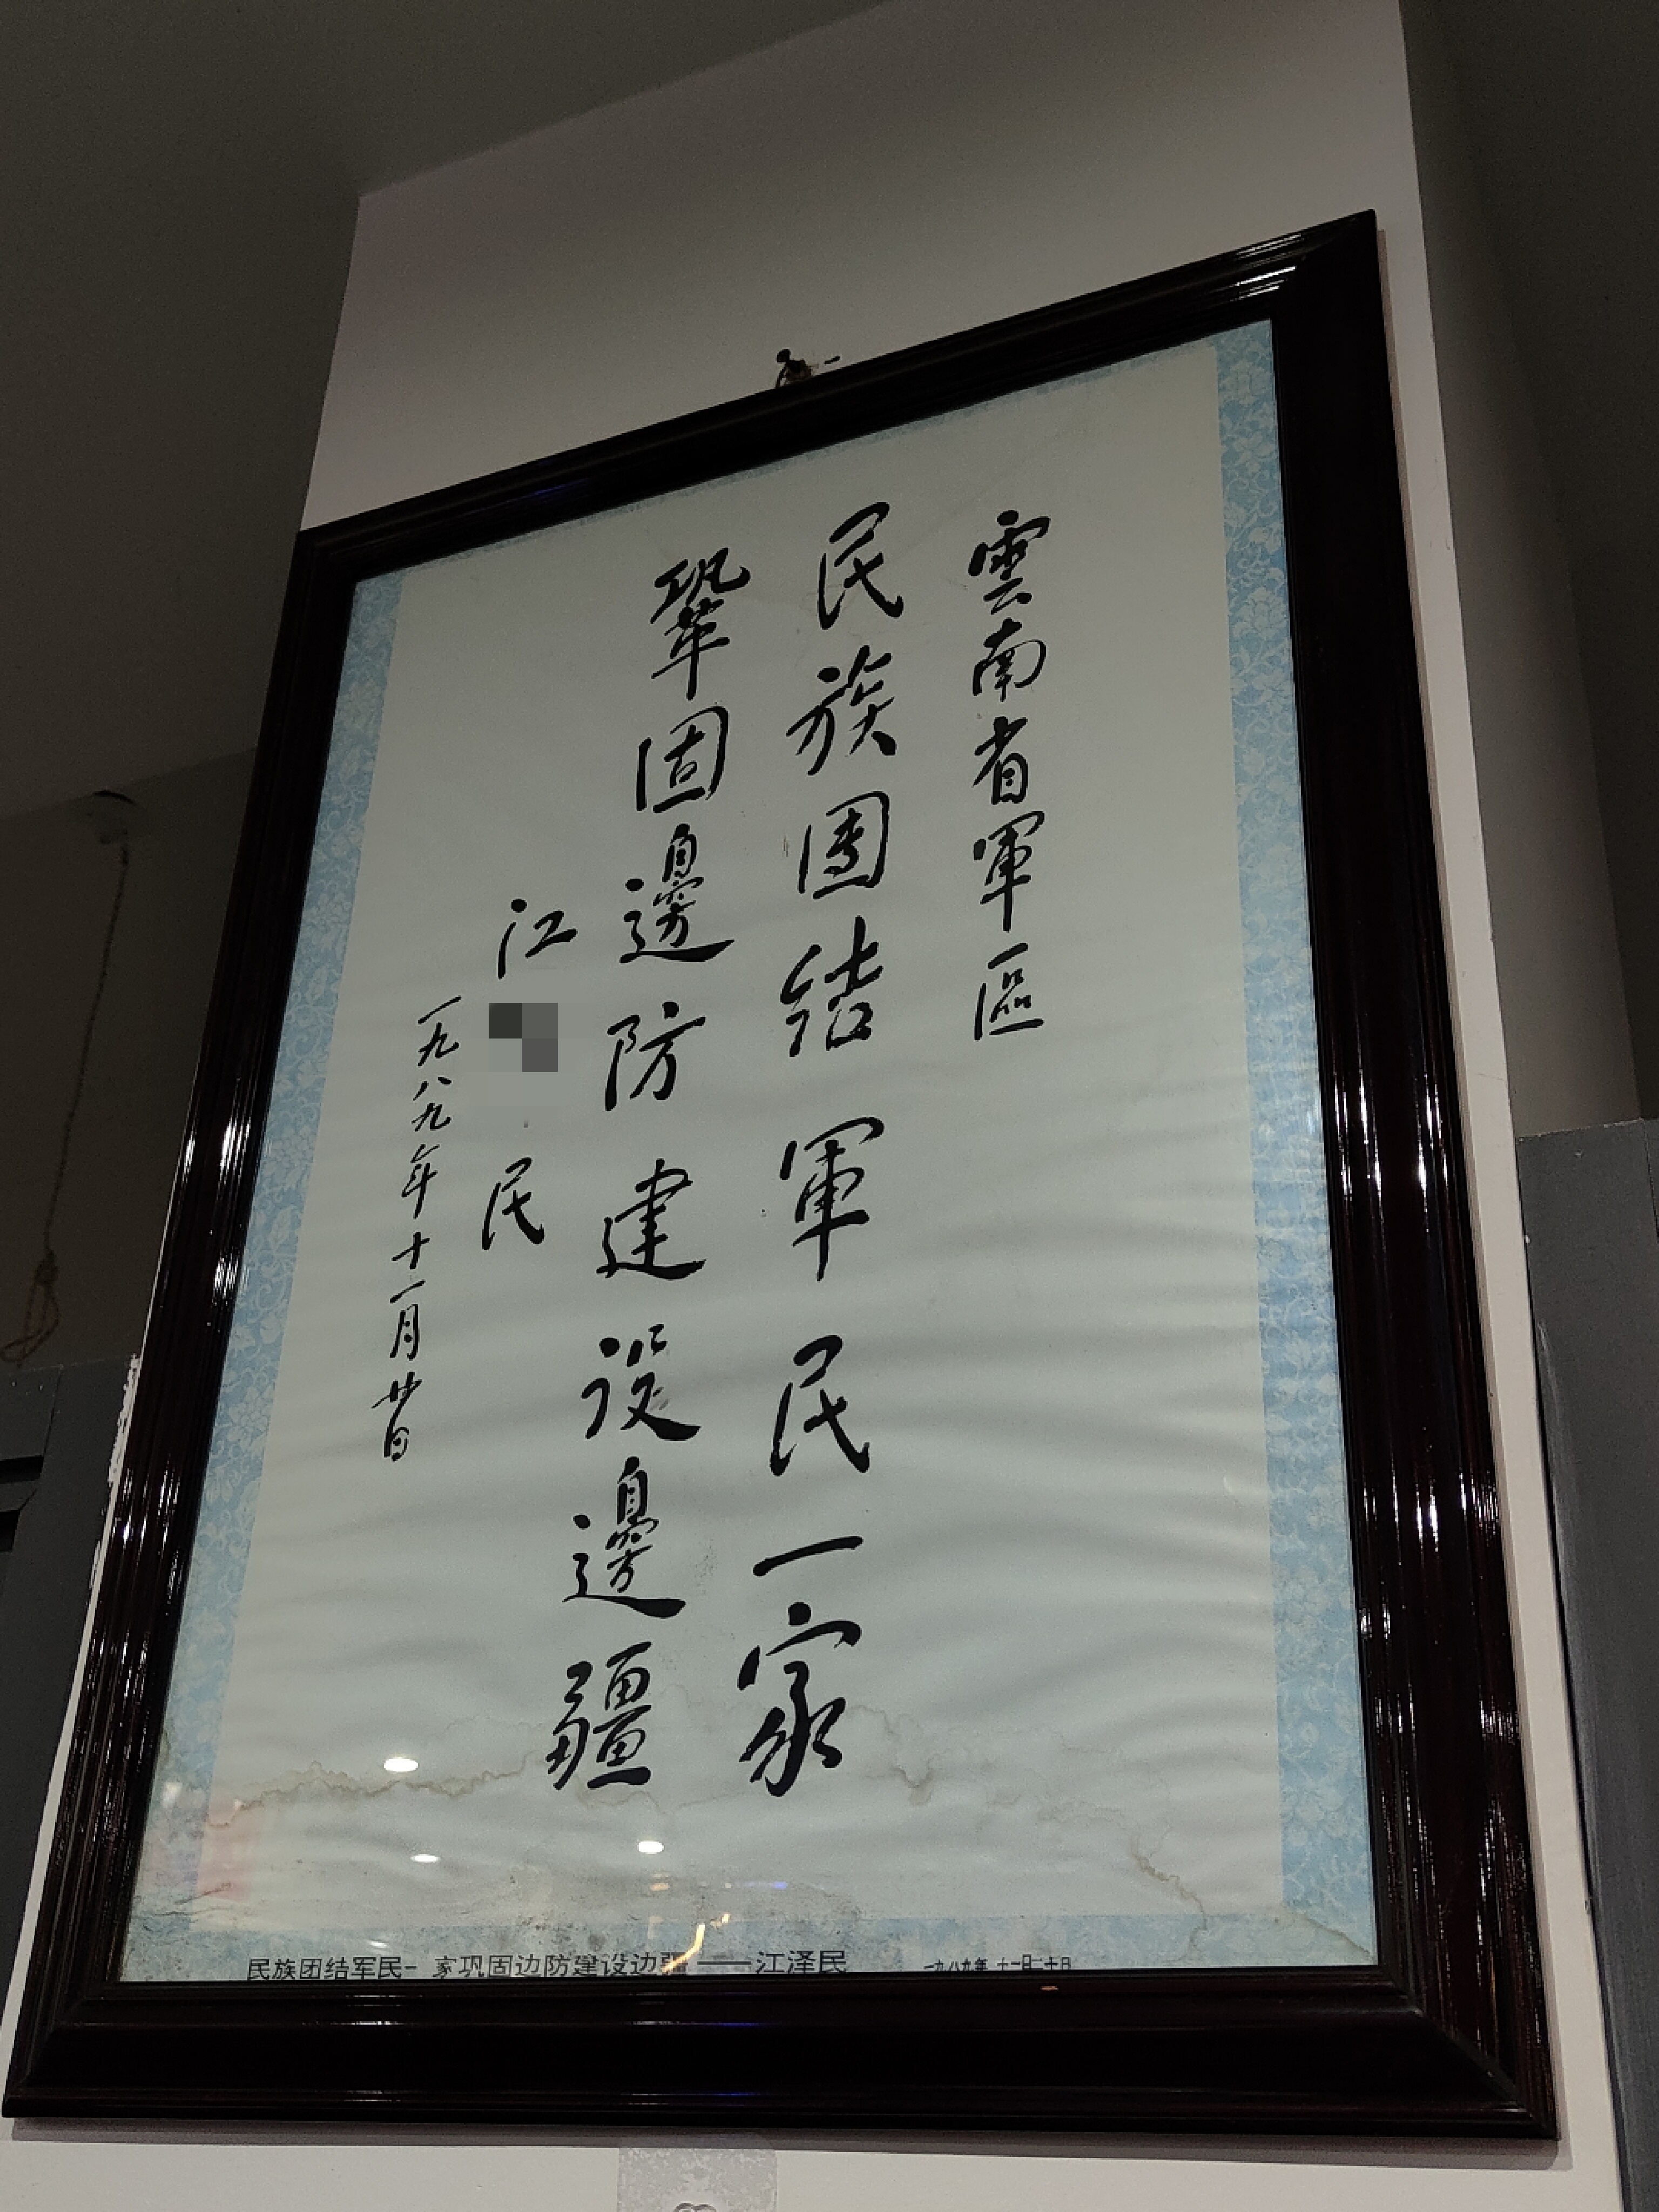 雲南省軍區
民族團结軍民一家
鞏固邊防建设邊疆
江 民
一九八九年十一月廿日
民族团结军民一家巩固边防建设边疆——江泽民 一九八九年十一月二十日